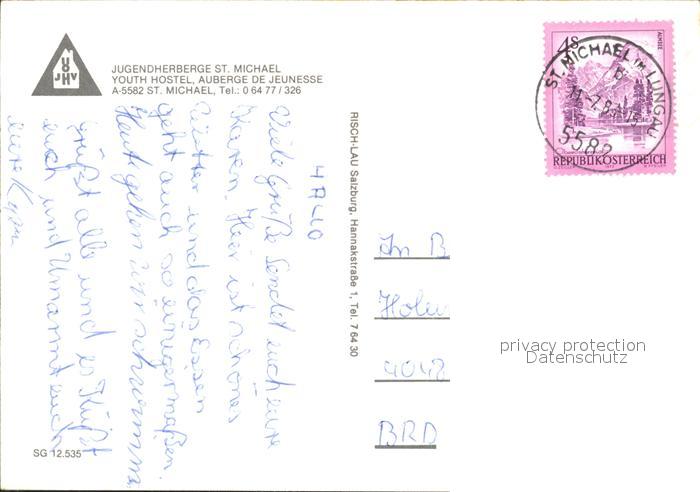 U
JHV
JUGENDHERBERGE ST. MICHAEL
YOUTH HOSTEL, AUBERGE DE JEUNESSE
A-5582 ST. MICHAEL, Tel.: 0 64 77 / 326
4S
ALMSEE
REPUBLIK ÖSTERREICH
ST. MICHAEL IM LUNGAU
5582
HALLO
Viele Grüße sendet euch eure
Karen. Hier ist schönes
Wetter und das Essen
geht auch so einigermaßen.
Heut gehen wir schwimmen
Grüßt alle und er Küßt
euch und Umarmt euch
eure Karen
RISCH-LAU Salzburg, Hannakstraße 1, Tel. 7 64 30
BRD
privacy protection
Datenschutz
SG 12.535